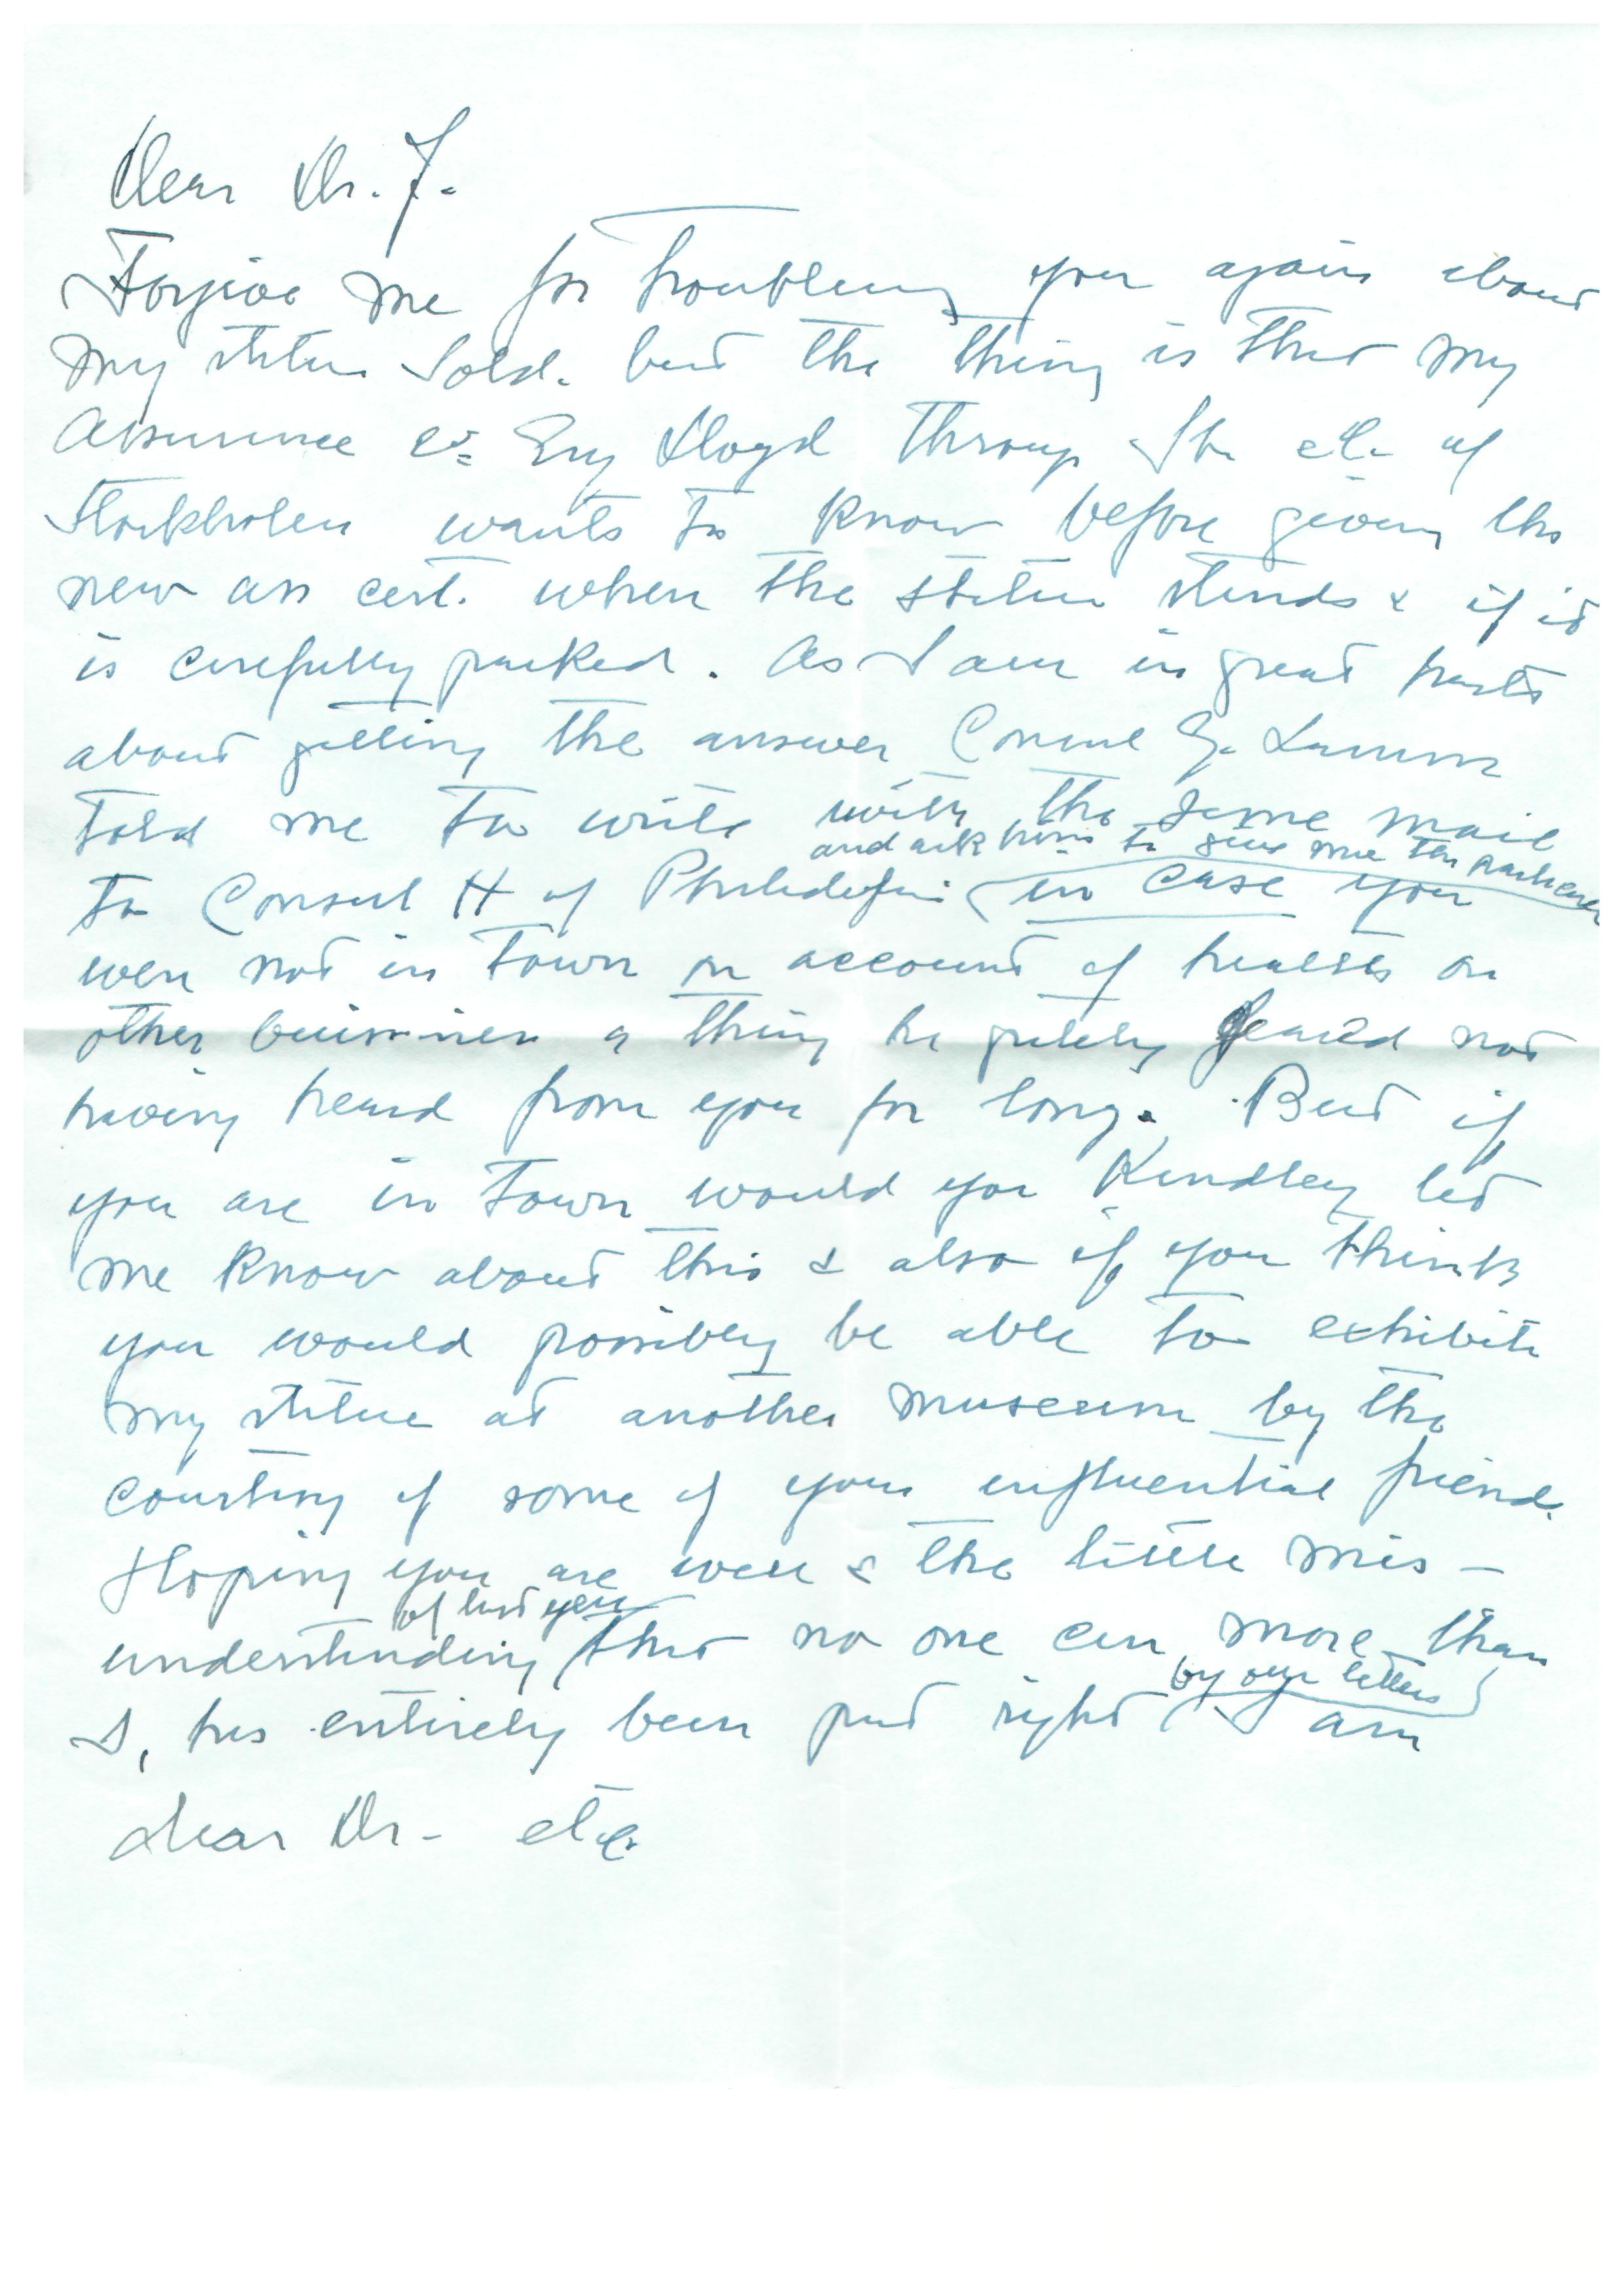 Dear Dr. F.
Forgive me for troubling you again about
my statue Sold. but the thing is that my
Assurance Eng Lloyd through of
Stockholm wants to know before giving the
new ass cert. where the statue stands & if it
is carefully packed. As I am in great haste
about getting the answer Consul G. Lamm
told me to write with the same mail
and ask him to give me the
to Consul H of Philadelphia in case you
were not in town on account of health or
other buissines a thing he greatly feared not
having heard from you for long. But if
you are in town would you Kindley let
me know about this & also if you think
you would possibly be able to exhibit
my statue at another museum by the
courtesy of some of your influential friend.
Hoping you are well & the little mis-
of last year
understanding that no one can more than
by our letters
I, has entirely been put right I am
dear Dr- etc.